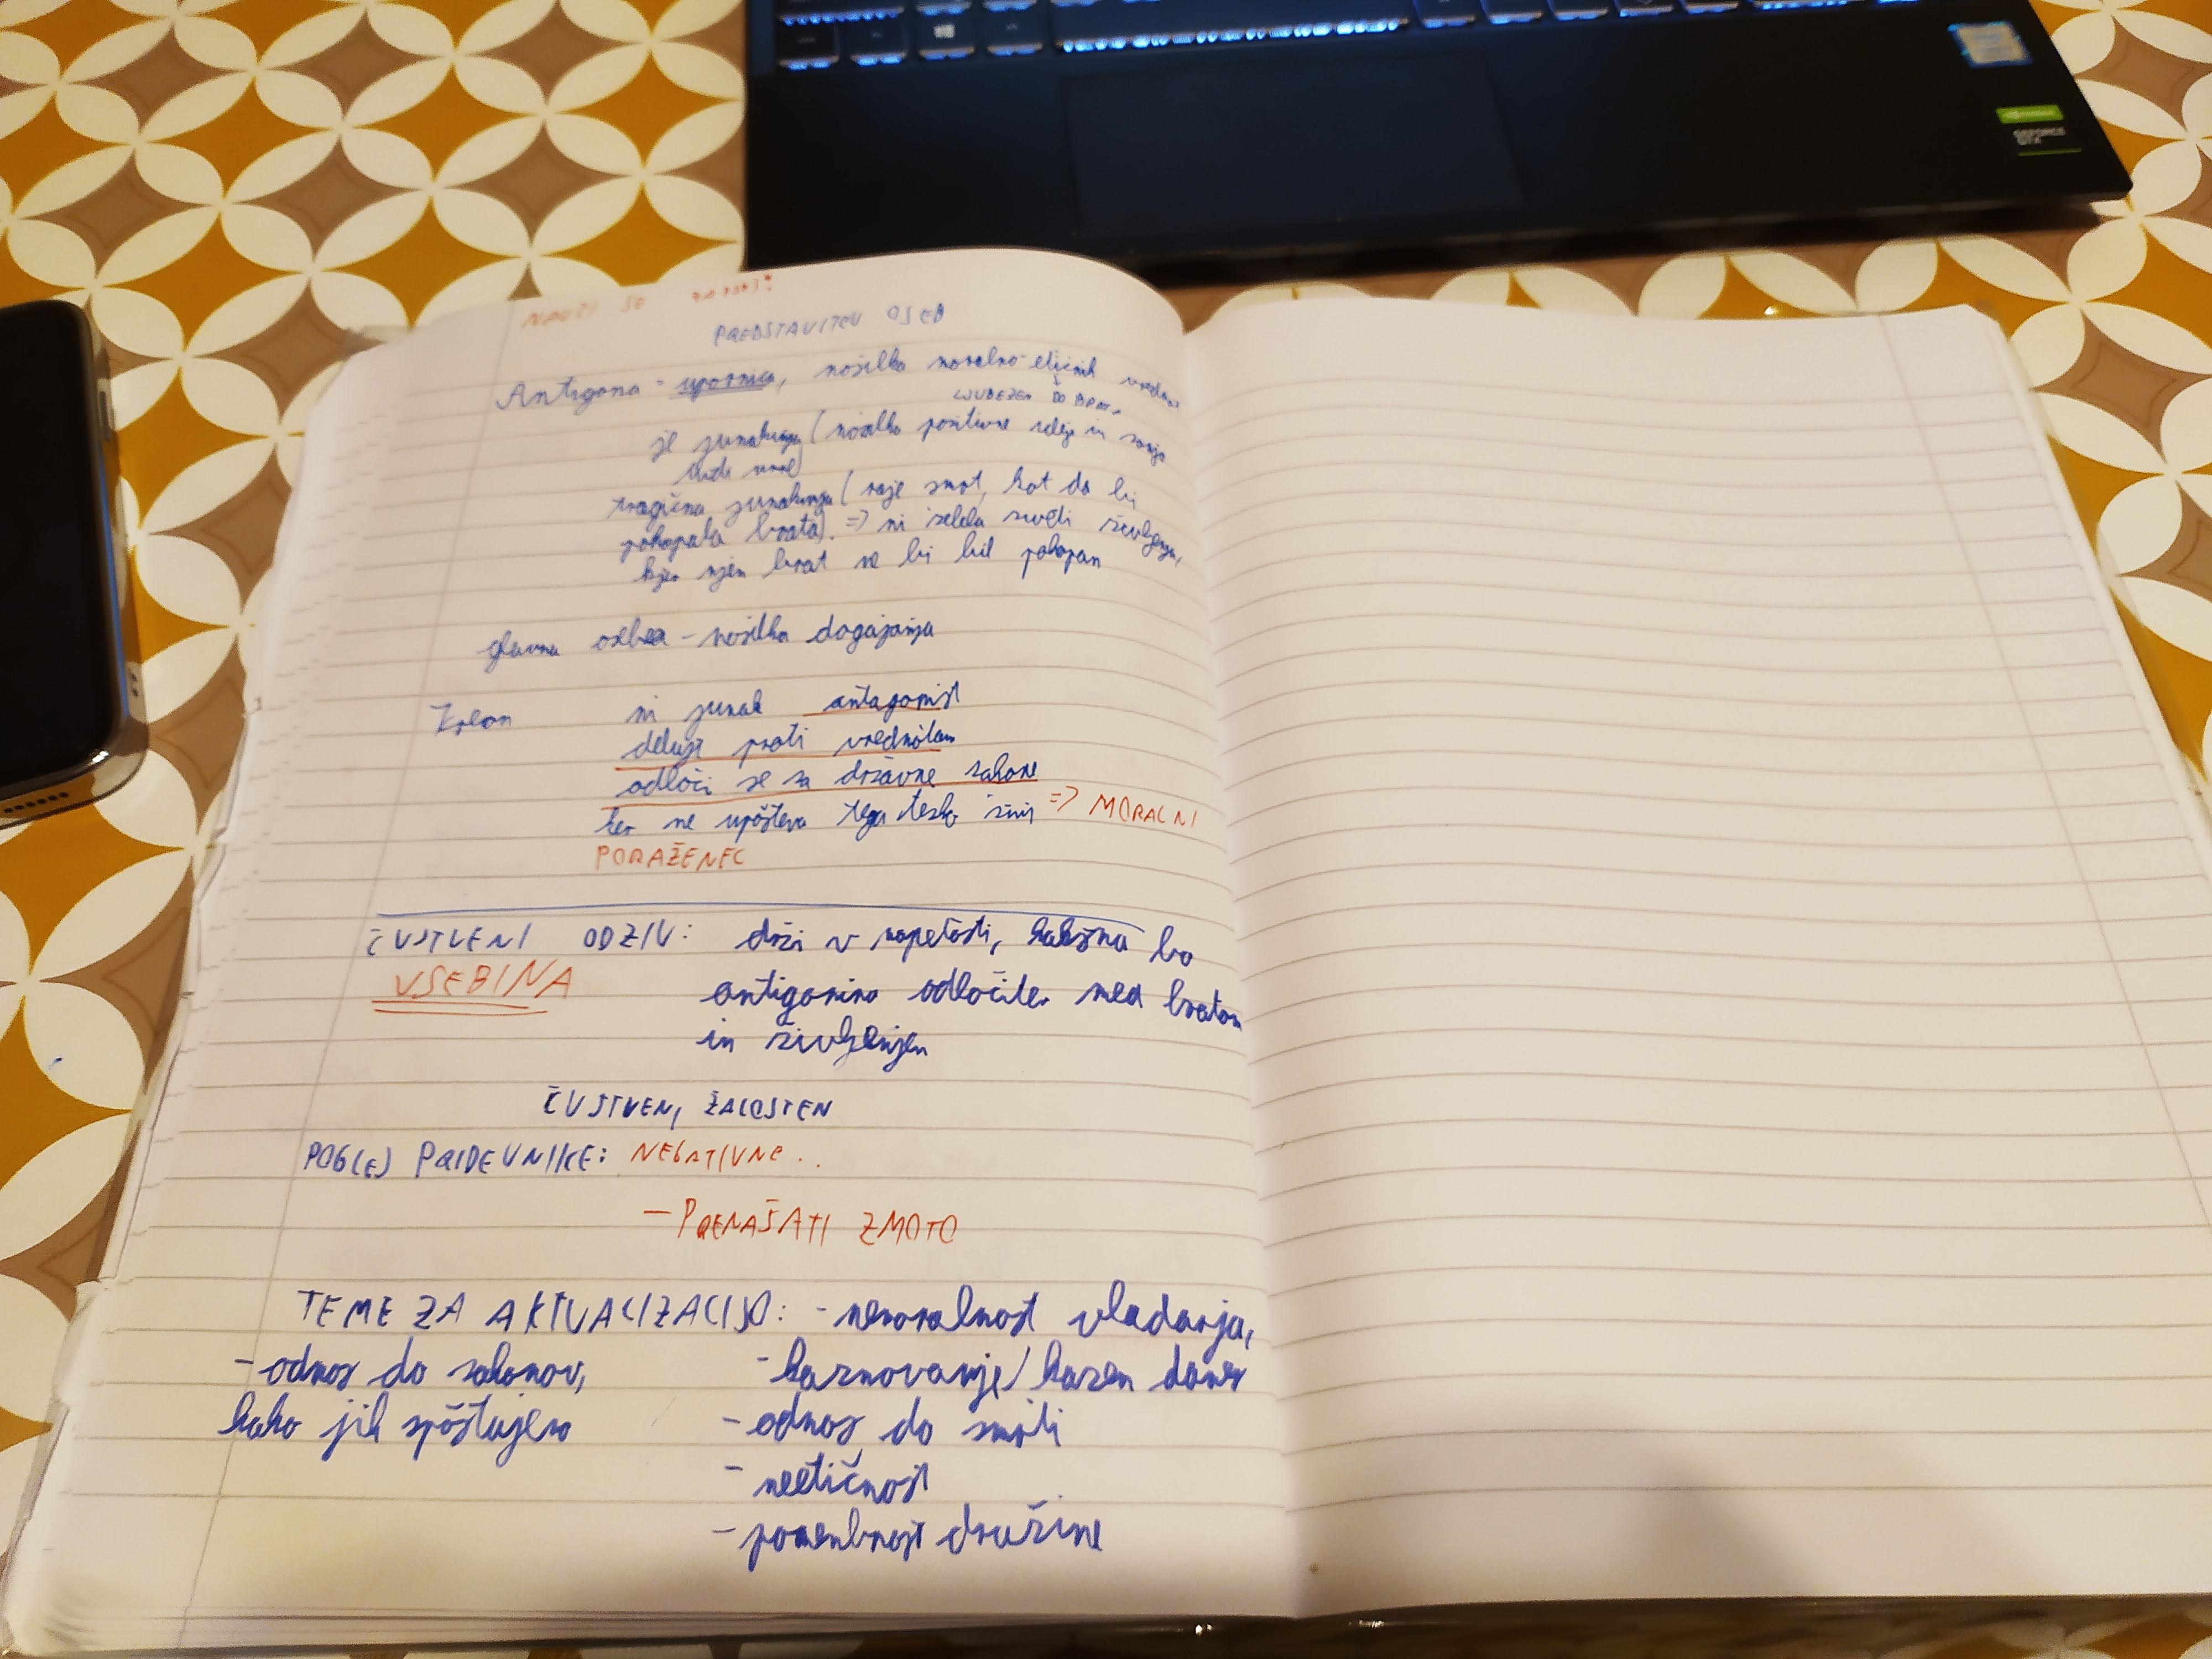 NAUČI SE
PREDSTAVITEV OSEB
Antigona - upornica, nosilka moralno-etičnih vrednot
LJUBEZEN DO BRATA
je junakinja (nosilka pozitivne ideje in zanjo
tudi umre)
tragična junakinja (raje smrt, kot da bi
pokopala brata). => ni želela živeti življenja,
kjer njen brat ne bi bil pokopan
glavna oseba - nosilka dogajanja
Kreon ni junak antagonist
deluje proti vrednotam
odloči se za državne zakone
ker ne upošteva tega težko živi => MORALNI
PORAŽENEC
ČUSTVENI ODZIV: drži v napetosti, kakšna bo
VSEBINA antigonina odločitev med bratom
in življenjem
ČUSTVEN, ŽALOSTEN
POGLEJ PRIDEVNIKE: NEGATIVNE..
- PRENAŠATI ZMOTO
TEME ZA AKTUALIZACIJO: - nemoralnost vladanja,
- odnos do zakonov, - kaznovanje/kazen danes
kako jih spoštujemo - odnos do smrti
- neetičnost
- pomembnost družine
GEFORCE
GTX